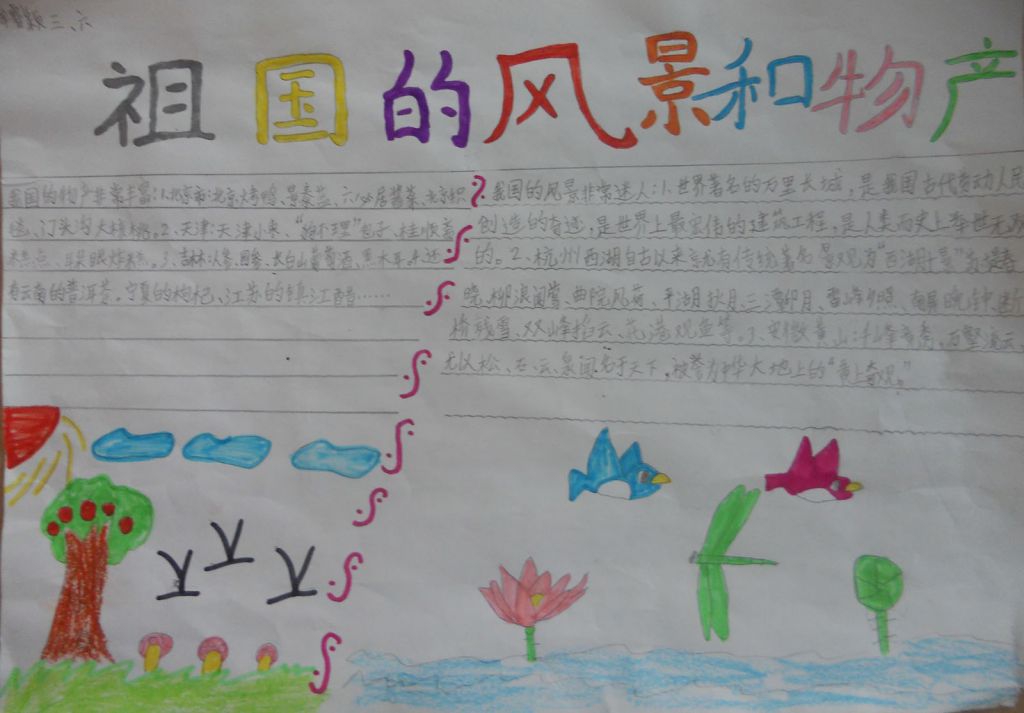 三、六
祖国的风景和物产
我国的物产非常丰富:1.北京市:北京烤鸭、景泰蓝、六必居酱菜、北京织
毯、门头沟大核桃。2、天津:天津小米、"狗不理"包子、桂发
炸糕点、耳朵眼炸糕。3、吉林:人参、田参、长白山葡萄酒、黑木耳。4、还
有云南的普洱茶。宁夏的枸杞、江苏的镇江醋……
我国的风景非常迷人:1、世界著名的万里长城,是我国古代劳动人民
创造的奇迹,是世界上最宏伟的建筑工程,是人类历史上举世无双
的。2、杭州西湖自古以来就有传统著名景观为"西湖十景"苏堤春
晓、柳浪闻莺、曲院风荷、平湖秋月、三潭印月、雷峰夕照、南屏晚钟、断
桥残雪、双峰插云、花港观鱼等。3、安徽黄山:千峰竞秀,万壑流云,
尤以松、石、云、泉闻名于天下,被誉为中华大地上的"黄上奇观。"